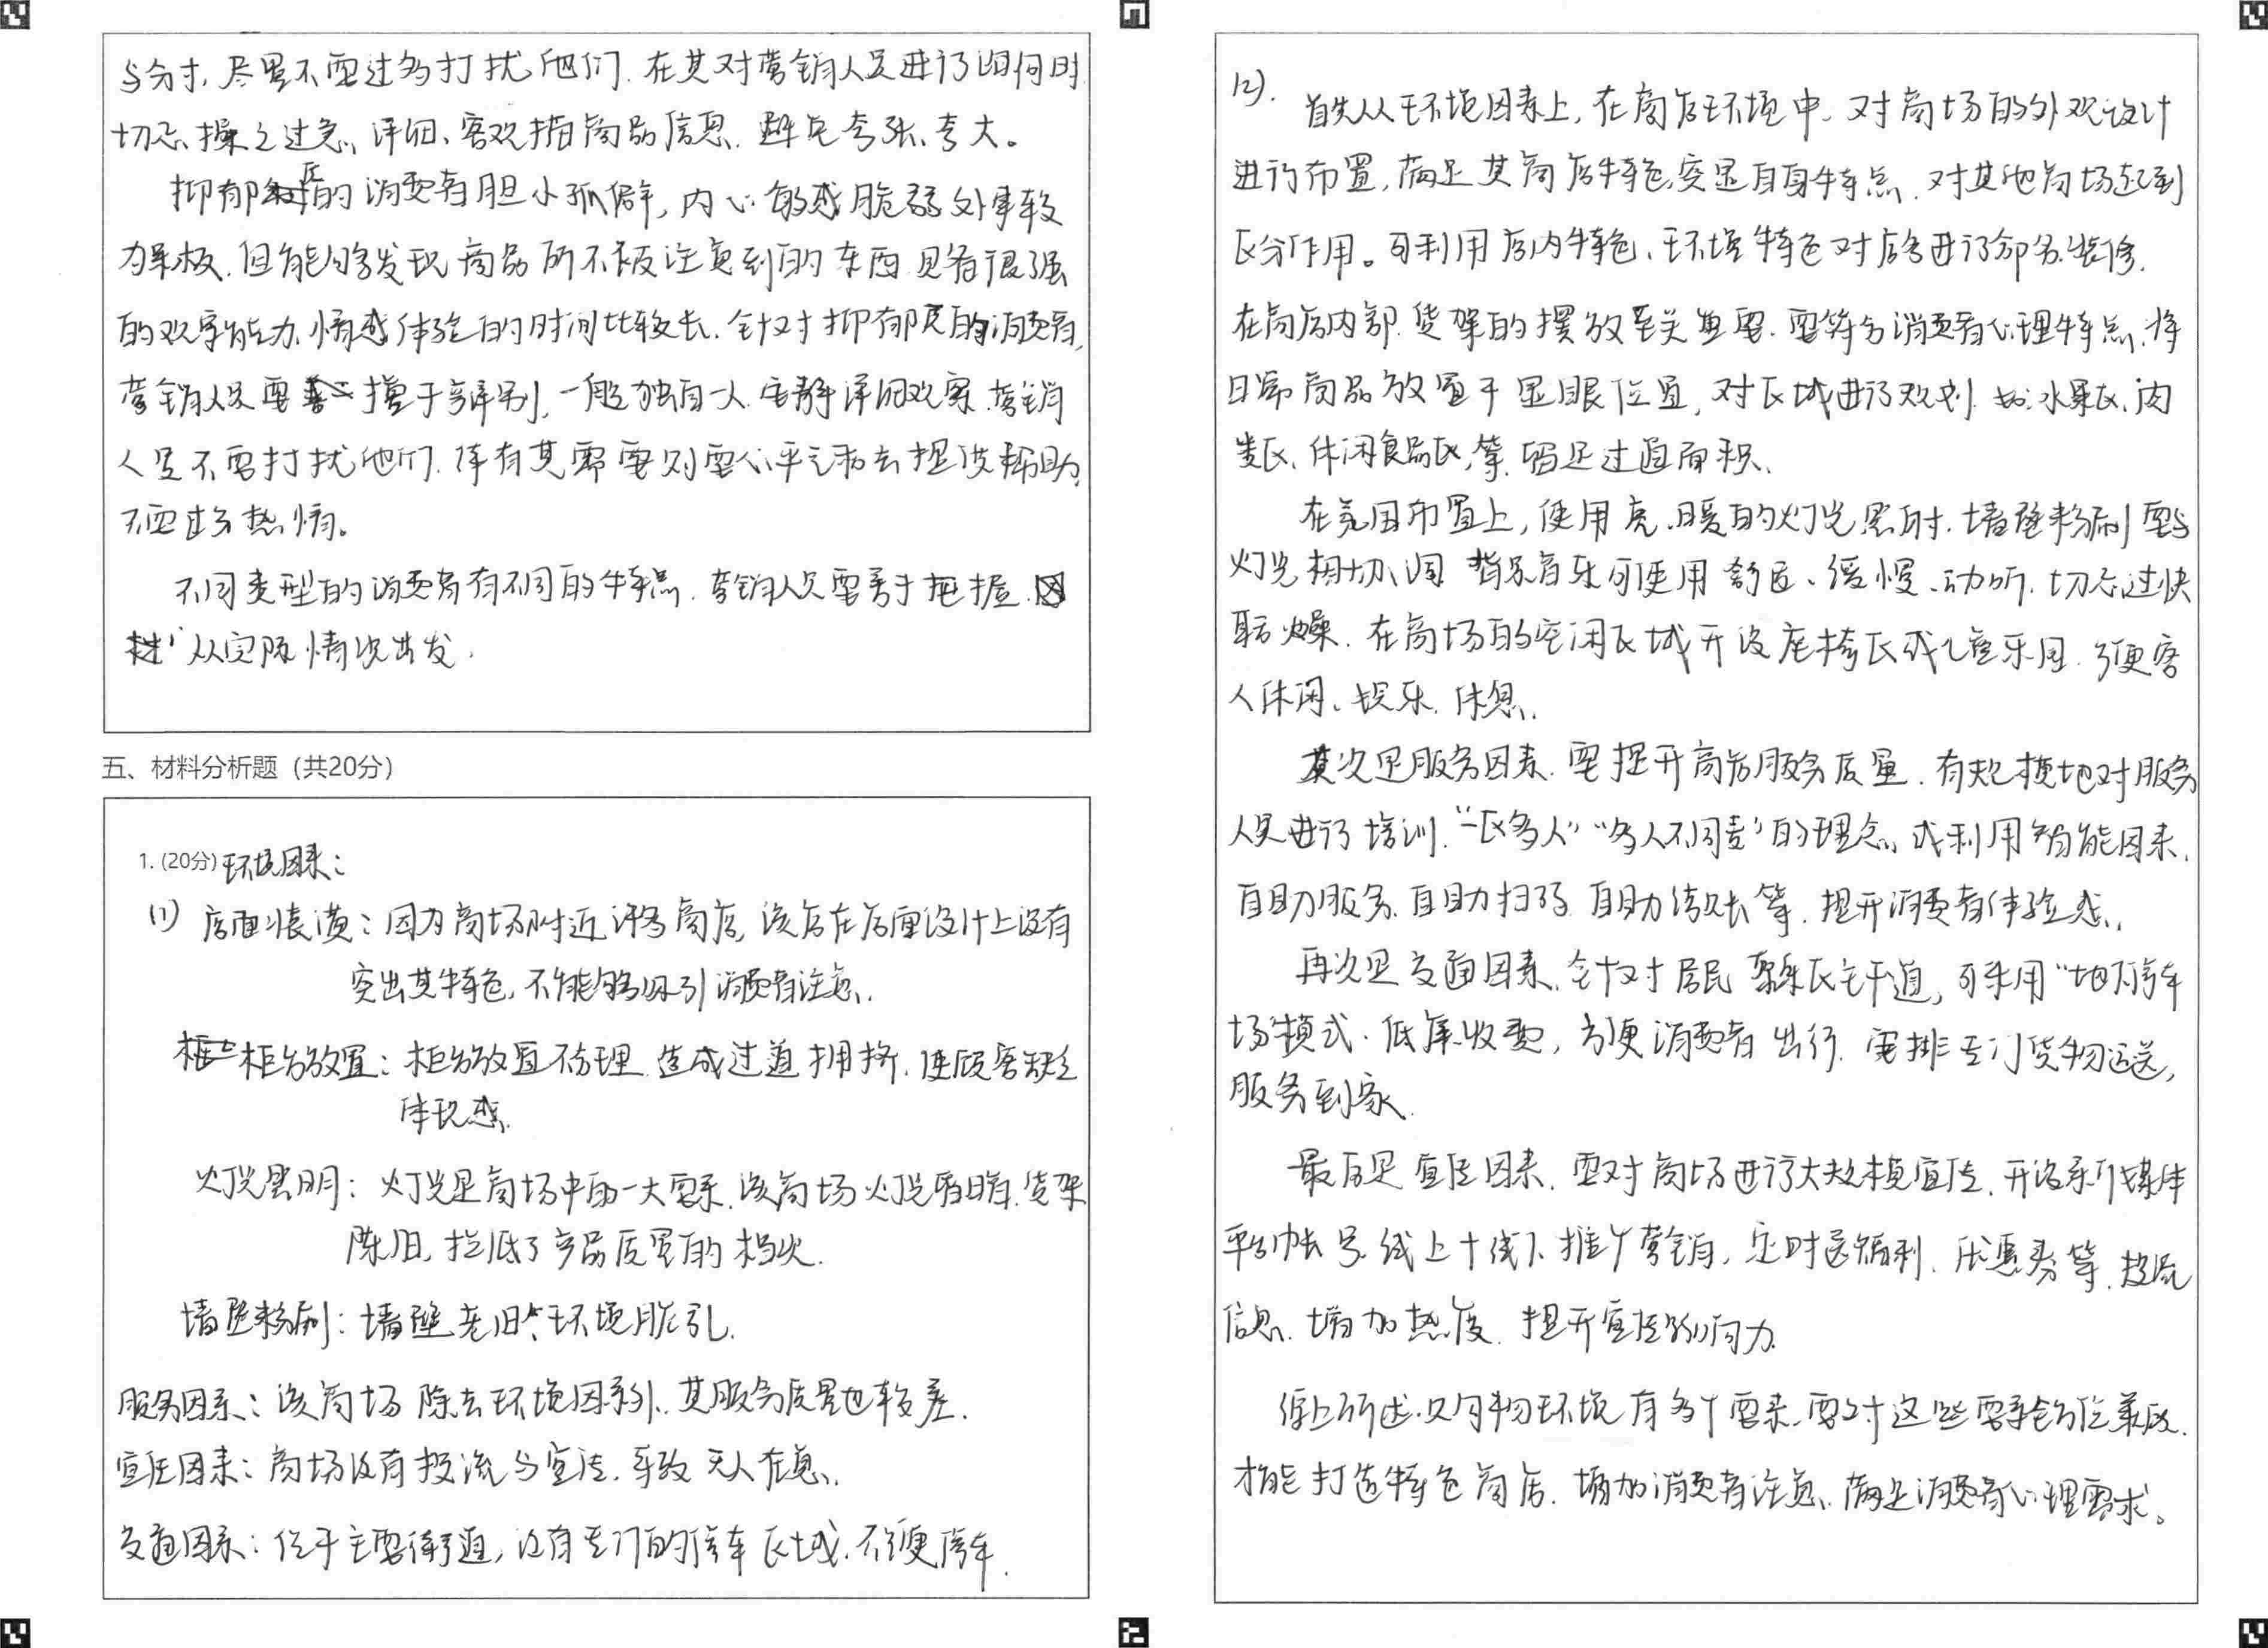 与分寸,尽量不要过多打扰他们.在其对营销人员进行询问时
切忌操之过急,详细、客观描商品信息.避免夸张、夸大。
抑郁质的消费者胆小孤僻,内心敏感脆弱处事较
为呆板.但能够发现商品所不被注意到的东西.具有很强
的观察能力,情感体验的时间比较长.针对抑郁质的消费者,
营销人员要擅于辨别,一般独自一人.安静详细观察.营销
人员不要打扰他们.待有其需要则要心平气和去提供帮助,
不要过分热情。
不同类型的消费者有不同的特点.营销人员要善于把握.
从实际情况出发.
五、材料分析题(共20分)
1.(20分)环境因素:
(1) 店面装潢:因为商场附近许多商店,该店在店面设计上没有
突出其特色,不能够吸引消费者注意.
柜台放置:柜台放置不合理.造成过道拥挤.使顾客缺乏
体现感.
灯光照明:灯光是商场中的一大要素.该商场灯光昏暗.货架
陈旧,拉低了产品质量的档次.
墙壁粉刷:墙壁老旧、环境脏乱.
服务因素:该商场除去环境因素外.其服务质量也较差.
宣传因素:商场没有投流与宣传.导致无人在意.
交通因素:位于主要街道,没有专门的停车区域.不便停车.
(2).
首先从环境因素上,在商店环境中.对商场的外观设计
进行布置,满足其商店特色,突显自身特点.对其他商场起到
区分作用。可利用店内特色、环境特色对店名进行命名、装修.
在商店内部.货架的摆放至关重要.要符合消费者心理特点.将
日常商品放置于显眼位置,对区域进行规划.如:水果区、肉
类区、休闲食品区,等.留足过道面积.
在氛围布置上,使用亮、暖的灯光照射.墙壁粉刷要与
灯光相协调.背景音乐可使用舒适、缓慢、动听.切忌过快
聒噪.在商场的空闲区域开设座椅区或儿童乐园.方便客
人休闲、娱乐.休息.
其次是服务因素.要提升商店服务质量.有规模地对服务
人员进行培训.“一区多人”“多人不同责”的理念.或利用智能因素.
自助服务.自助扫码.自助结账等.提升消费者体验感.
再次是交通因素.针对居民聚集区主干道,可采用“地下停车
场”模式.低廉收费,方便消费者出行.安排专门货物运送,
服务到家.
最后是宣传因素.要对商场进行大规模宣传.开设系列媒体
平台帐号.线上+线下推广营销,定时送福利、优惠券等.投流
信息.增加热度.提升宣传影响力.
综上所述.购物环境有多个要素.要对这些要素全方位兼顾.
才能打造特色商店.增加消费者注意.满足消费者心理需求。